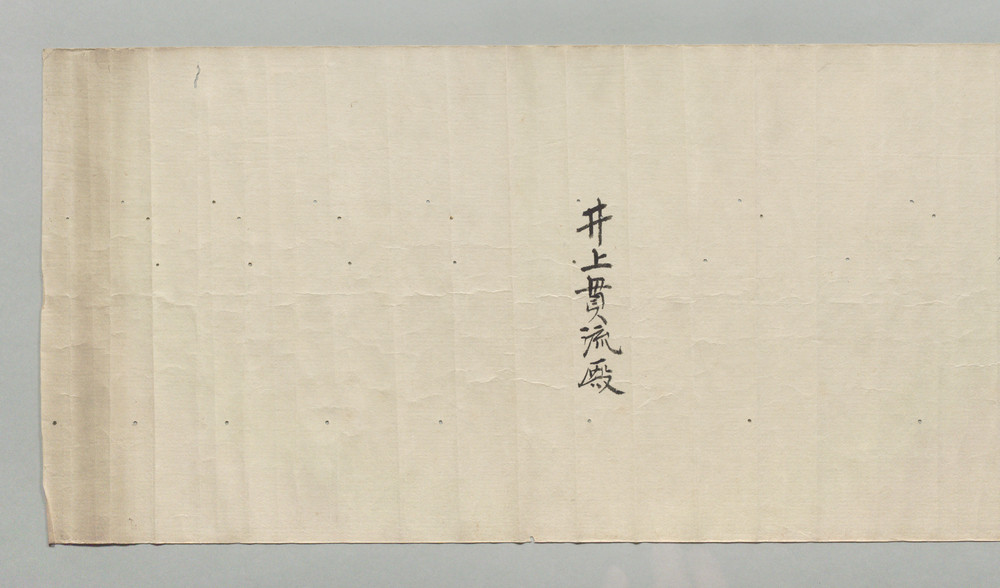 井上貫流殿